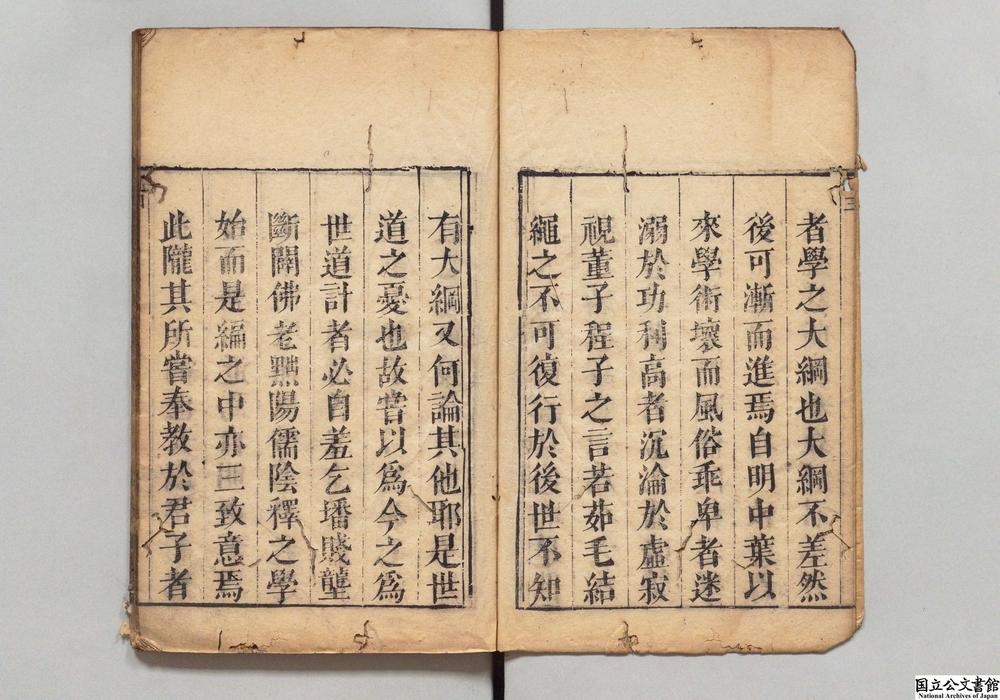 者學之大綱也大綱不差然
後可漸而進焉自明中葉以
來學術壞而風俗乖卑者迷
溺於功利高者沉淪於虛寂
視董子程子之言若茹毛結
繩之不可復行於後世不知
有大綱又何論其他耶是世
道之憂也故嘗以爲今之爲
世道計者必自羞乞墦賤壟
斷闢佛老黜陽儒陰釋之學
始而是編之中亦三致意焉
此隴其所嘗奉教於君子者
三
国立公文書館
National Archives of Japan